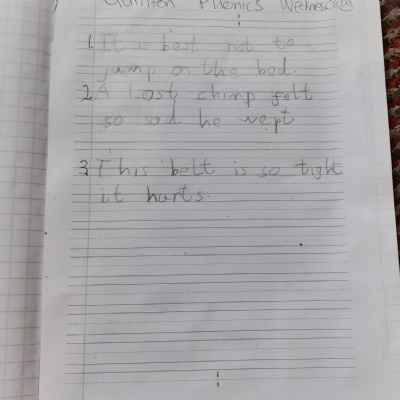 Quinten Phonics Wednesday
1. It is best not to
jump on the bed.
2. A lost chimp felt
so sad he wept
3. This belt is so tight
it harts.